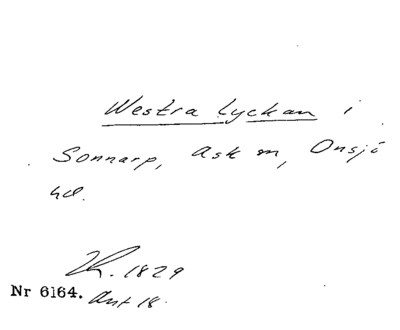 Westra Lyckan i
Sonnarp, Ask sn, Onsjö
hd.
Lk. 1829
Nr 6164. Akt 18.